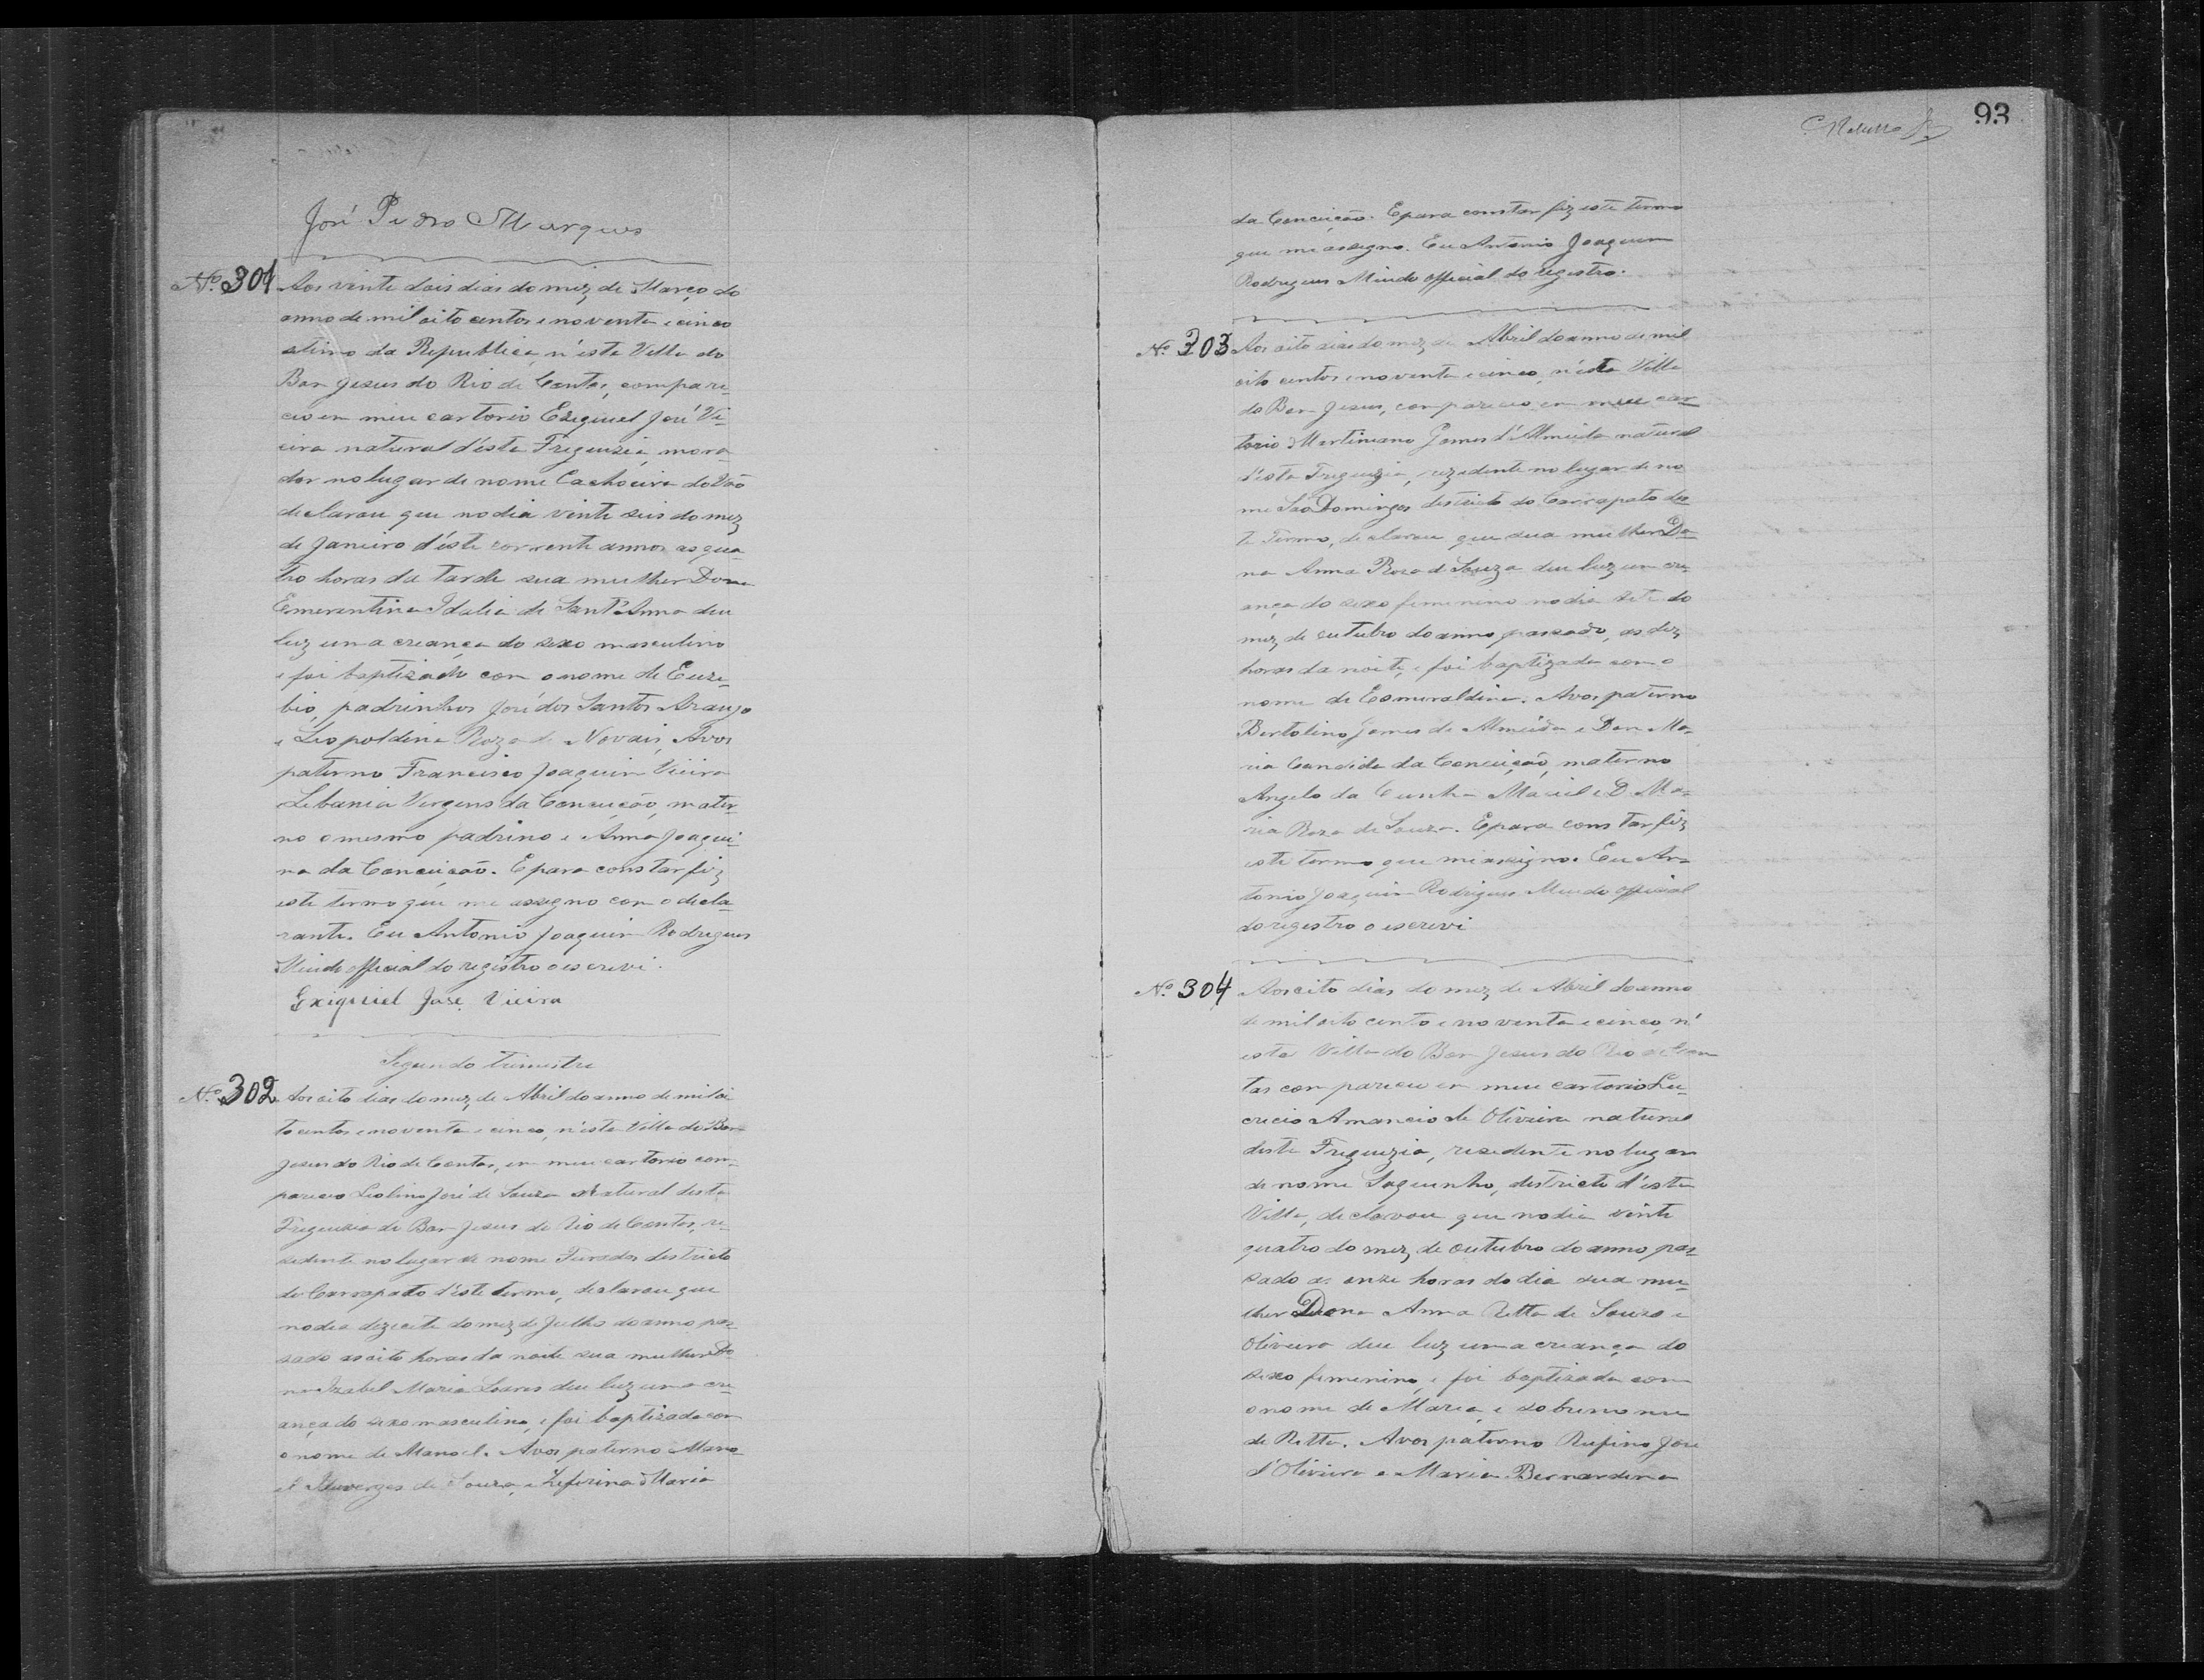 José Pedro Marques
Nº 301 Aos vinte dois dias do mez de Março do
anno de mil oito centos e noventa e cinco
setimo da Republica, n'esta Villa do
Bom Jesus do Rio de Contas, compare-
ceo em meu cartorio Ezequiel José Vi-
eira natural d'esta Freguezia, mora-
dor no lugar de nome Cachoeira do Vão
declarou que no dia vinte seis do mez
de Janeiro d'este corrente anno as qua-
tro horas da tarde sua mulher Dona
Esmerentina Idalia de Sant'Anna deu
luz uma creança do sexo masculino
e foi baptizado com o nome de Euze-
bio, padrinhos José dos Santos Araujo
e Leopoldina Roza de Novais, Avos
paterno Francisco Joaquim Vieira
Libania Virgens da Conceição, mater-
no o mesmo padrino e Anna Joaqui-
na da Conceição. E para constar fiz
este termo que me assegno com o decla-
rante. Eu Antonio Joaquim Rodrigues
official do registro o escrevi.
Exiquiel Jose Vieira
Segundo trimestre
Nº 302 Aos oito dias do mez de Abril do anno de mil oi-
to centos e noventa e cinco, n'esta Villa do Bom
Jesus do Rio de Contas, em meu cartorio com-
pareceo Leolino José de Souza natural desta
Freguezia do Bom Jesus do Rio de Contas, re-
sidente no lugar de nome Furados districto
do Carrapato d'este termo, declarou que
no dia dezecete do mez de Julho do anno pas-
sado as oito horas da noite sua mulher Do-
na Izabel Maria Soares deu luz uma cre-
ança do sexo masculino, e foi baptizado com
o nome de Manoel. Avos paterno Mano-
el de Souza, e Zeferina Maria
93
da Conceição. E para constar fiz este termo
que me assegno. Eu Antonio Joaquim
Rodrigues official do registro.
Nº 303 Aos oito dias do mez de Abril do anno de mil
oito centos e noventa e cinco, n'esta Villa
do Bom Jesus, compareceo em meu car-
torio Martiniano Gomes d'Almeida natural
d'esta Freguezia, rezedente no lugar de no-
me São Domingos districto do Carrapato des-
te Termo, declarou que sua mulher Do-
na Anna Roza de Souza deu luz um cre-
ança do sexo femenino no dia sete do
mez de outubro do anno passado, as dez
horas da noite, e foi baptizada com o
nome de Esmeraldina. Avos paterno
Bertolino Gomes de Almeida e Don Ma-
ria Candida da Conceição, materno
Angelo da Cunha Maciel e D. Ma-
ria Roza de Souza. E para constar fiz
este termo que me assigno. Eu An-
tonio Joaquim Rodrigues official
do registro o escrevi
Nº 304 Aos oito dias do mez de Abril do anno
de mil oito cento e noventa e cinco, n'
esta Villa do Bom Jesus do Rio de Con-
tas compareceu em meu cartorio Lu-
crecio Amancio de Oliveira natural
desta Freguezia, resedente no lugar
de nome Saquinho, districto d'esta
Villa, declarou que no dia vinte
quatro do mez de outubro do anno pas-
sado as onze horas do dia sua mu-
lher Dona Anna Ritta de Souza e
Oliveira deu luz uma creança do
sexo femenino, e foi baptizada com
o nome de Maria, e sobrenome
de Ritta. Avos paterno Rufino Jose
d'Oliveira e Maria Bernardina